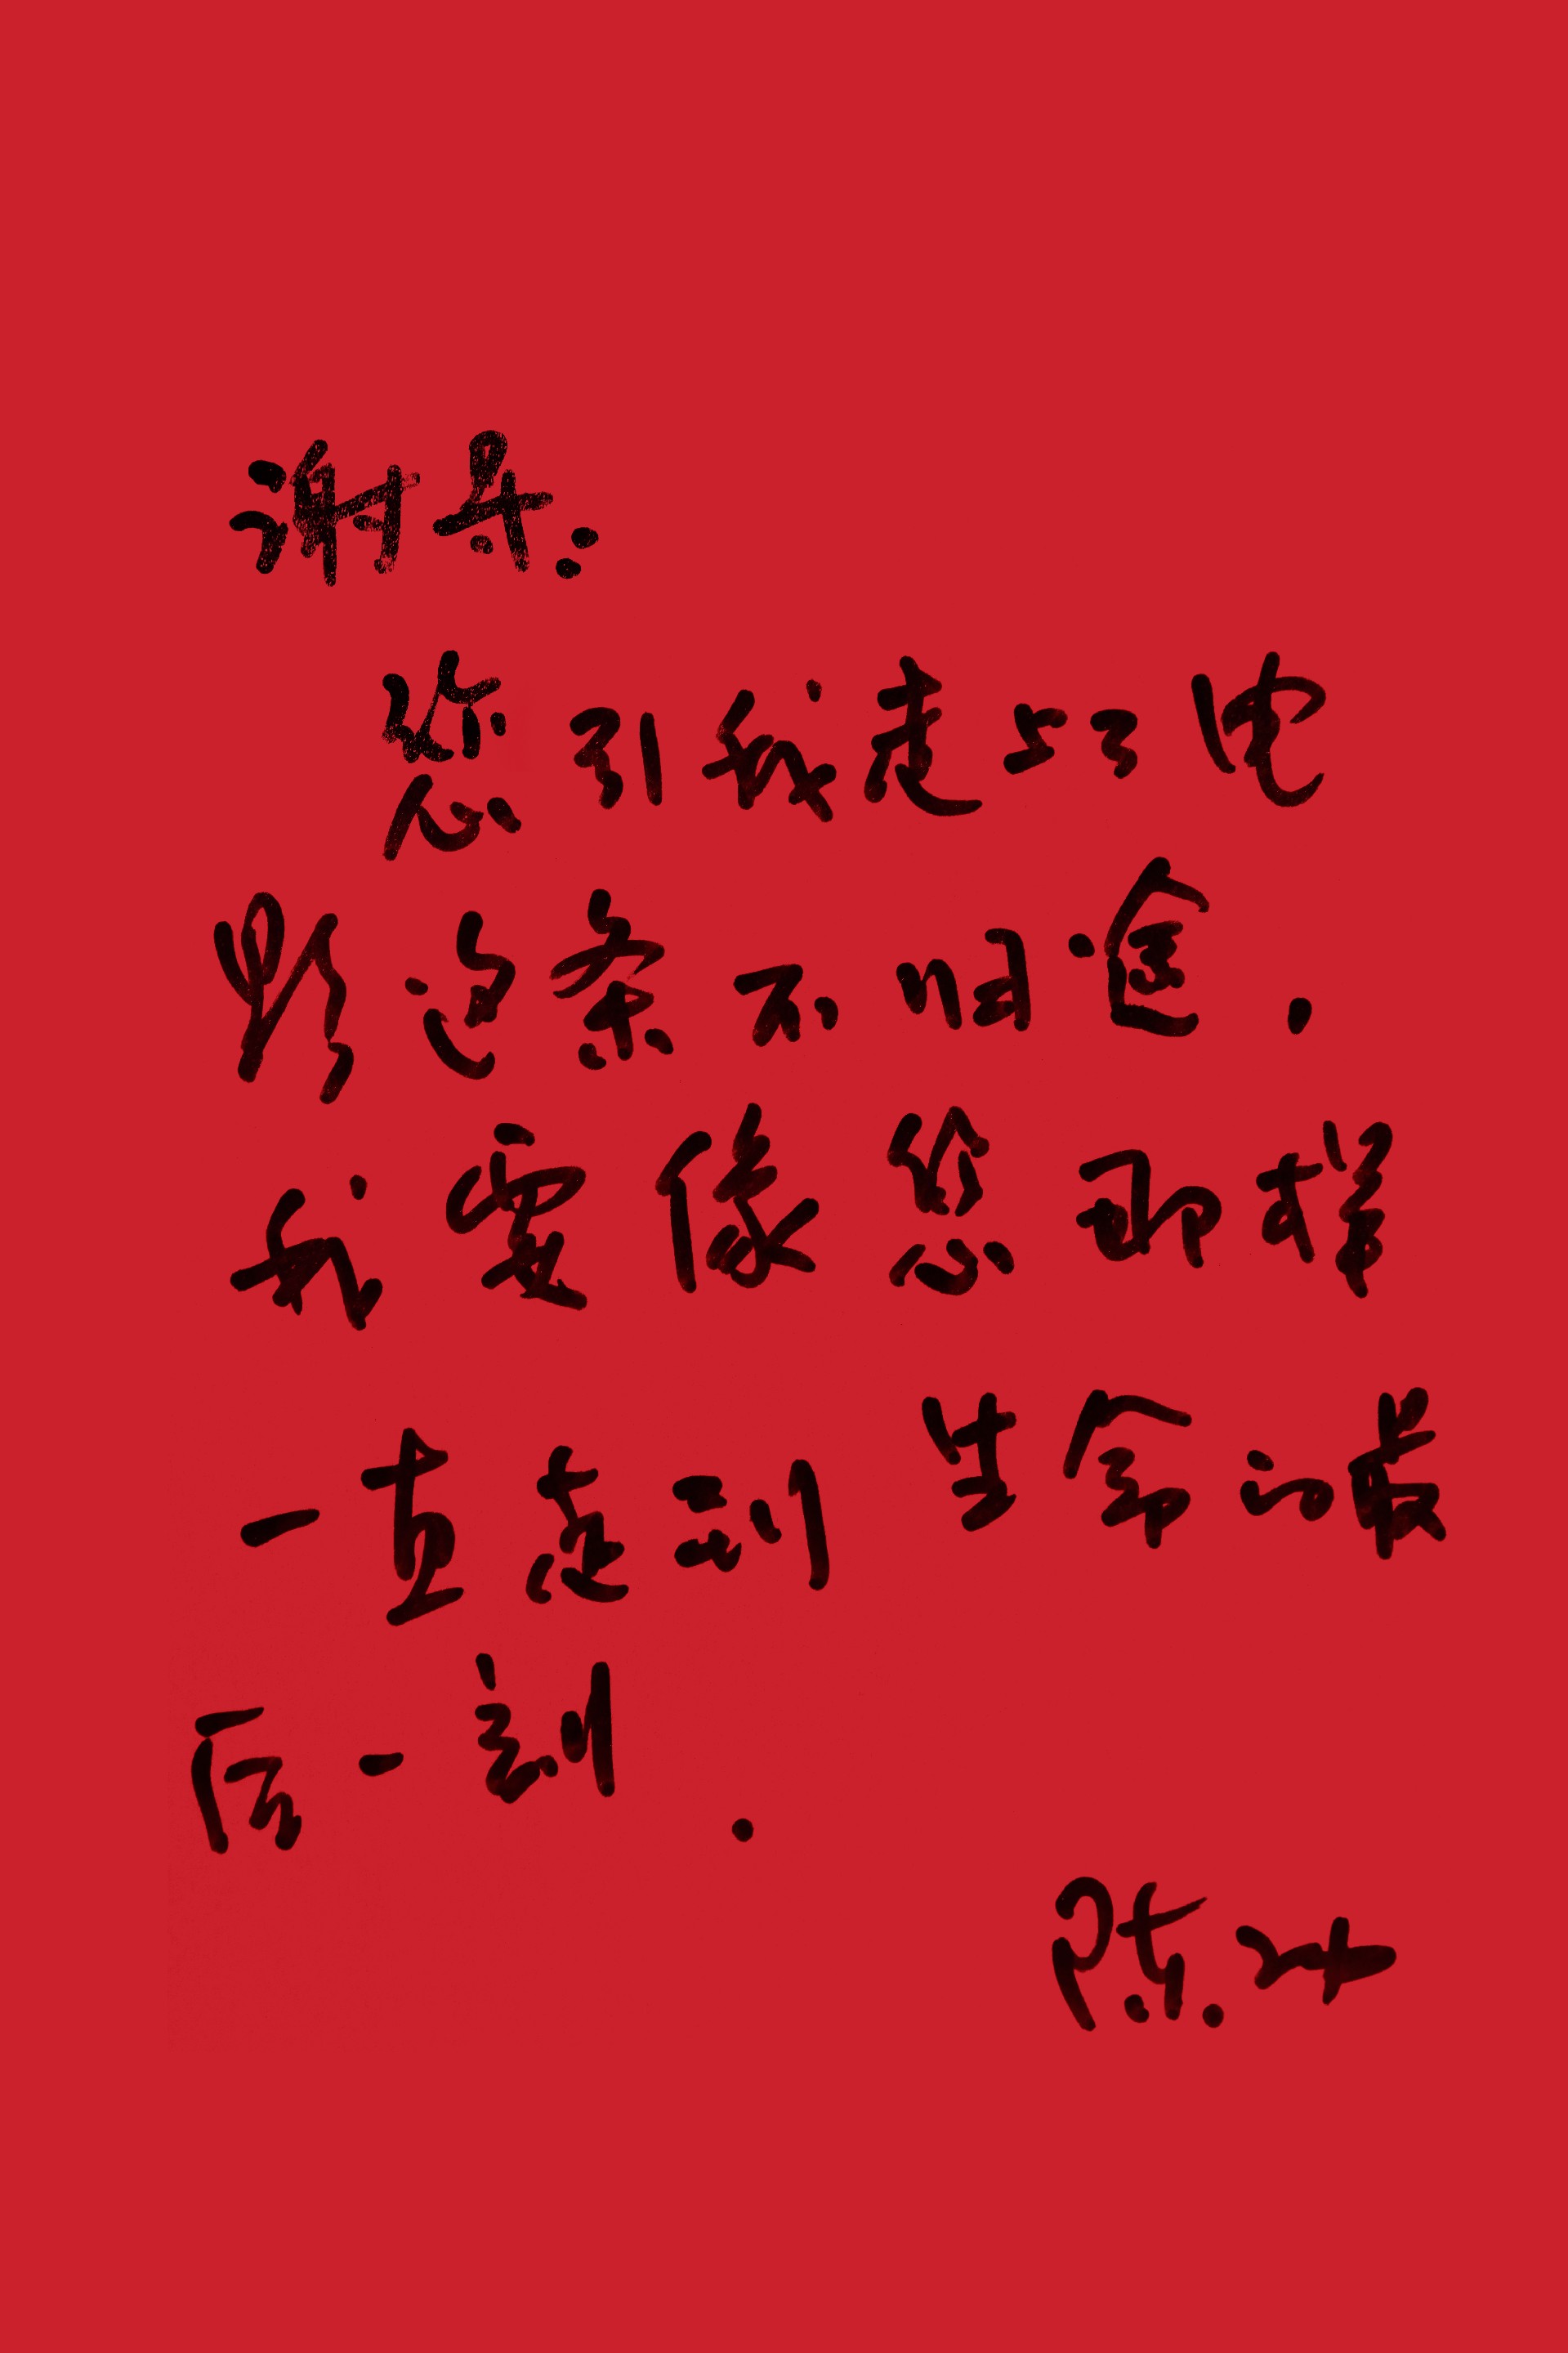 谢导:
您引我走上了电
影这条不归途,
我要像您那样
一直走到生命的最
后一刻.
陈冲